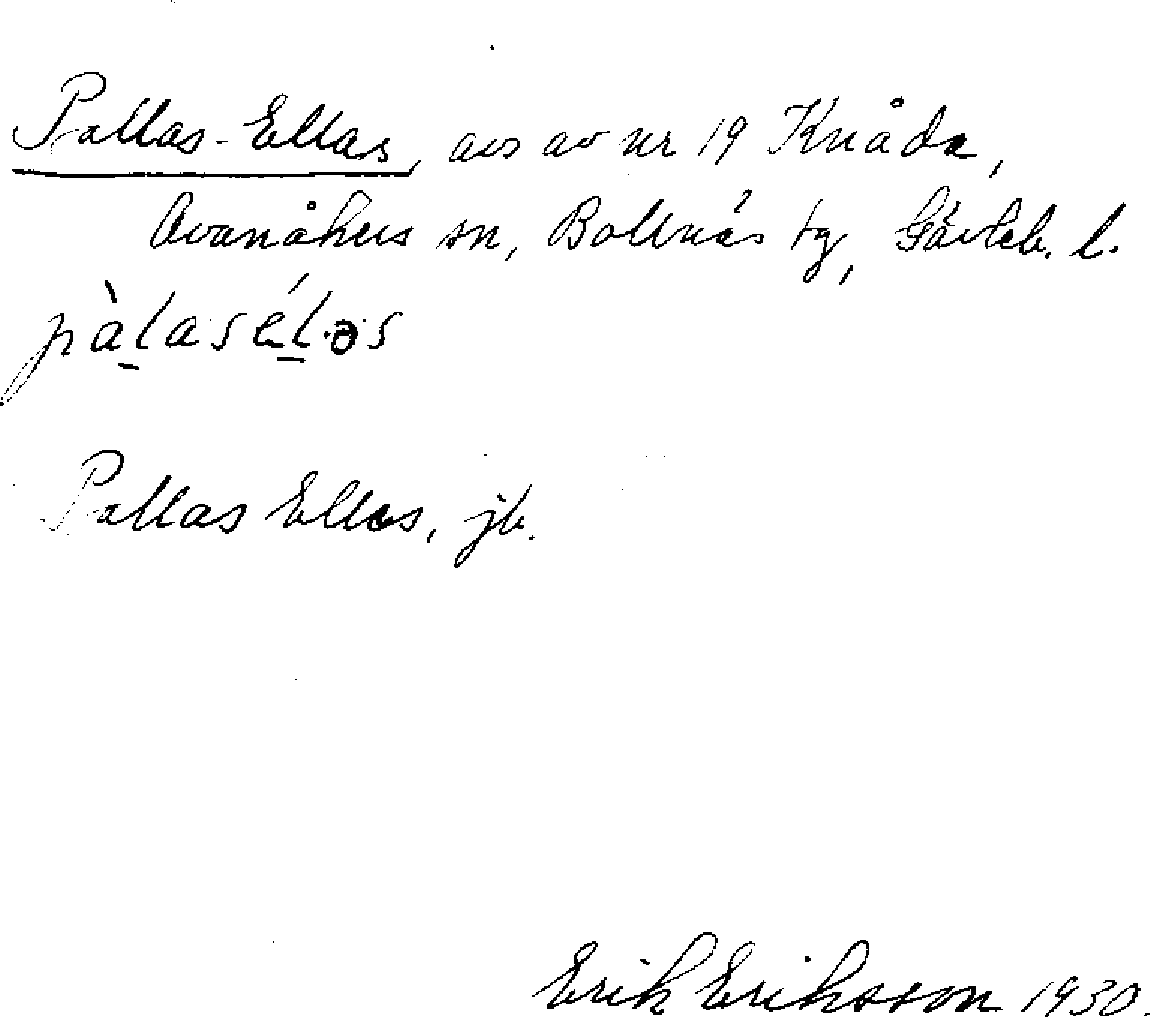 Pallas-Ellas, avs av nr 19 Knåda,
Ovanåkers sn, Bollnäs tg, Gävleb. l.
pàlasél.əs
Pallas Ellas, jb.
Erik Eriksson 1930.